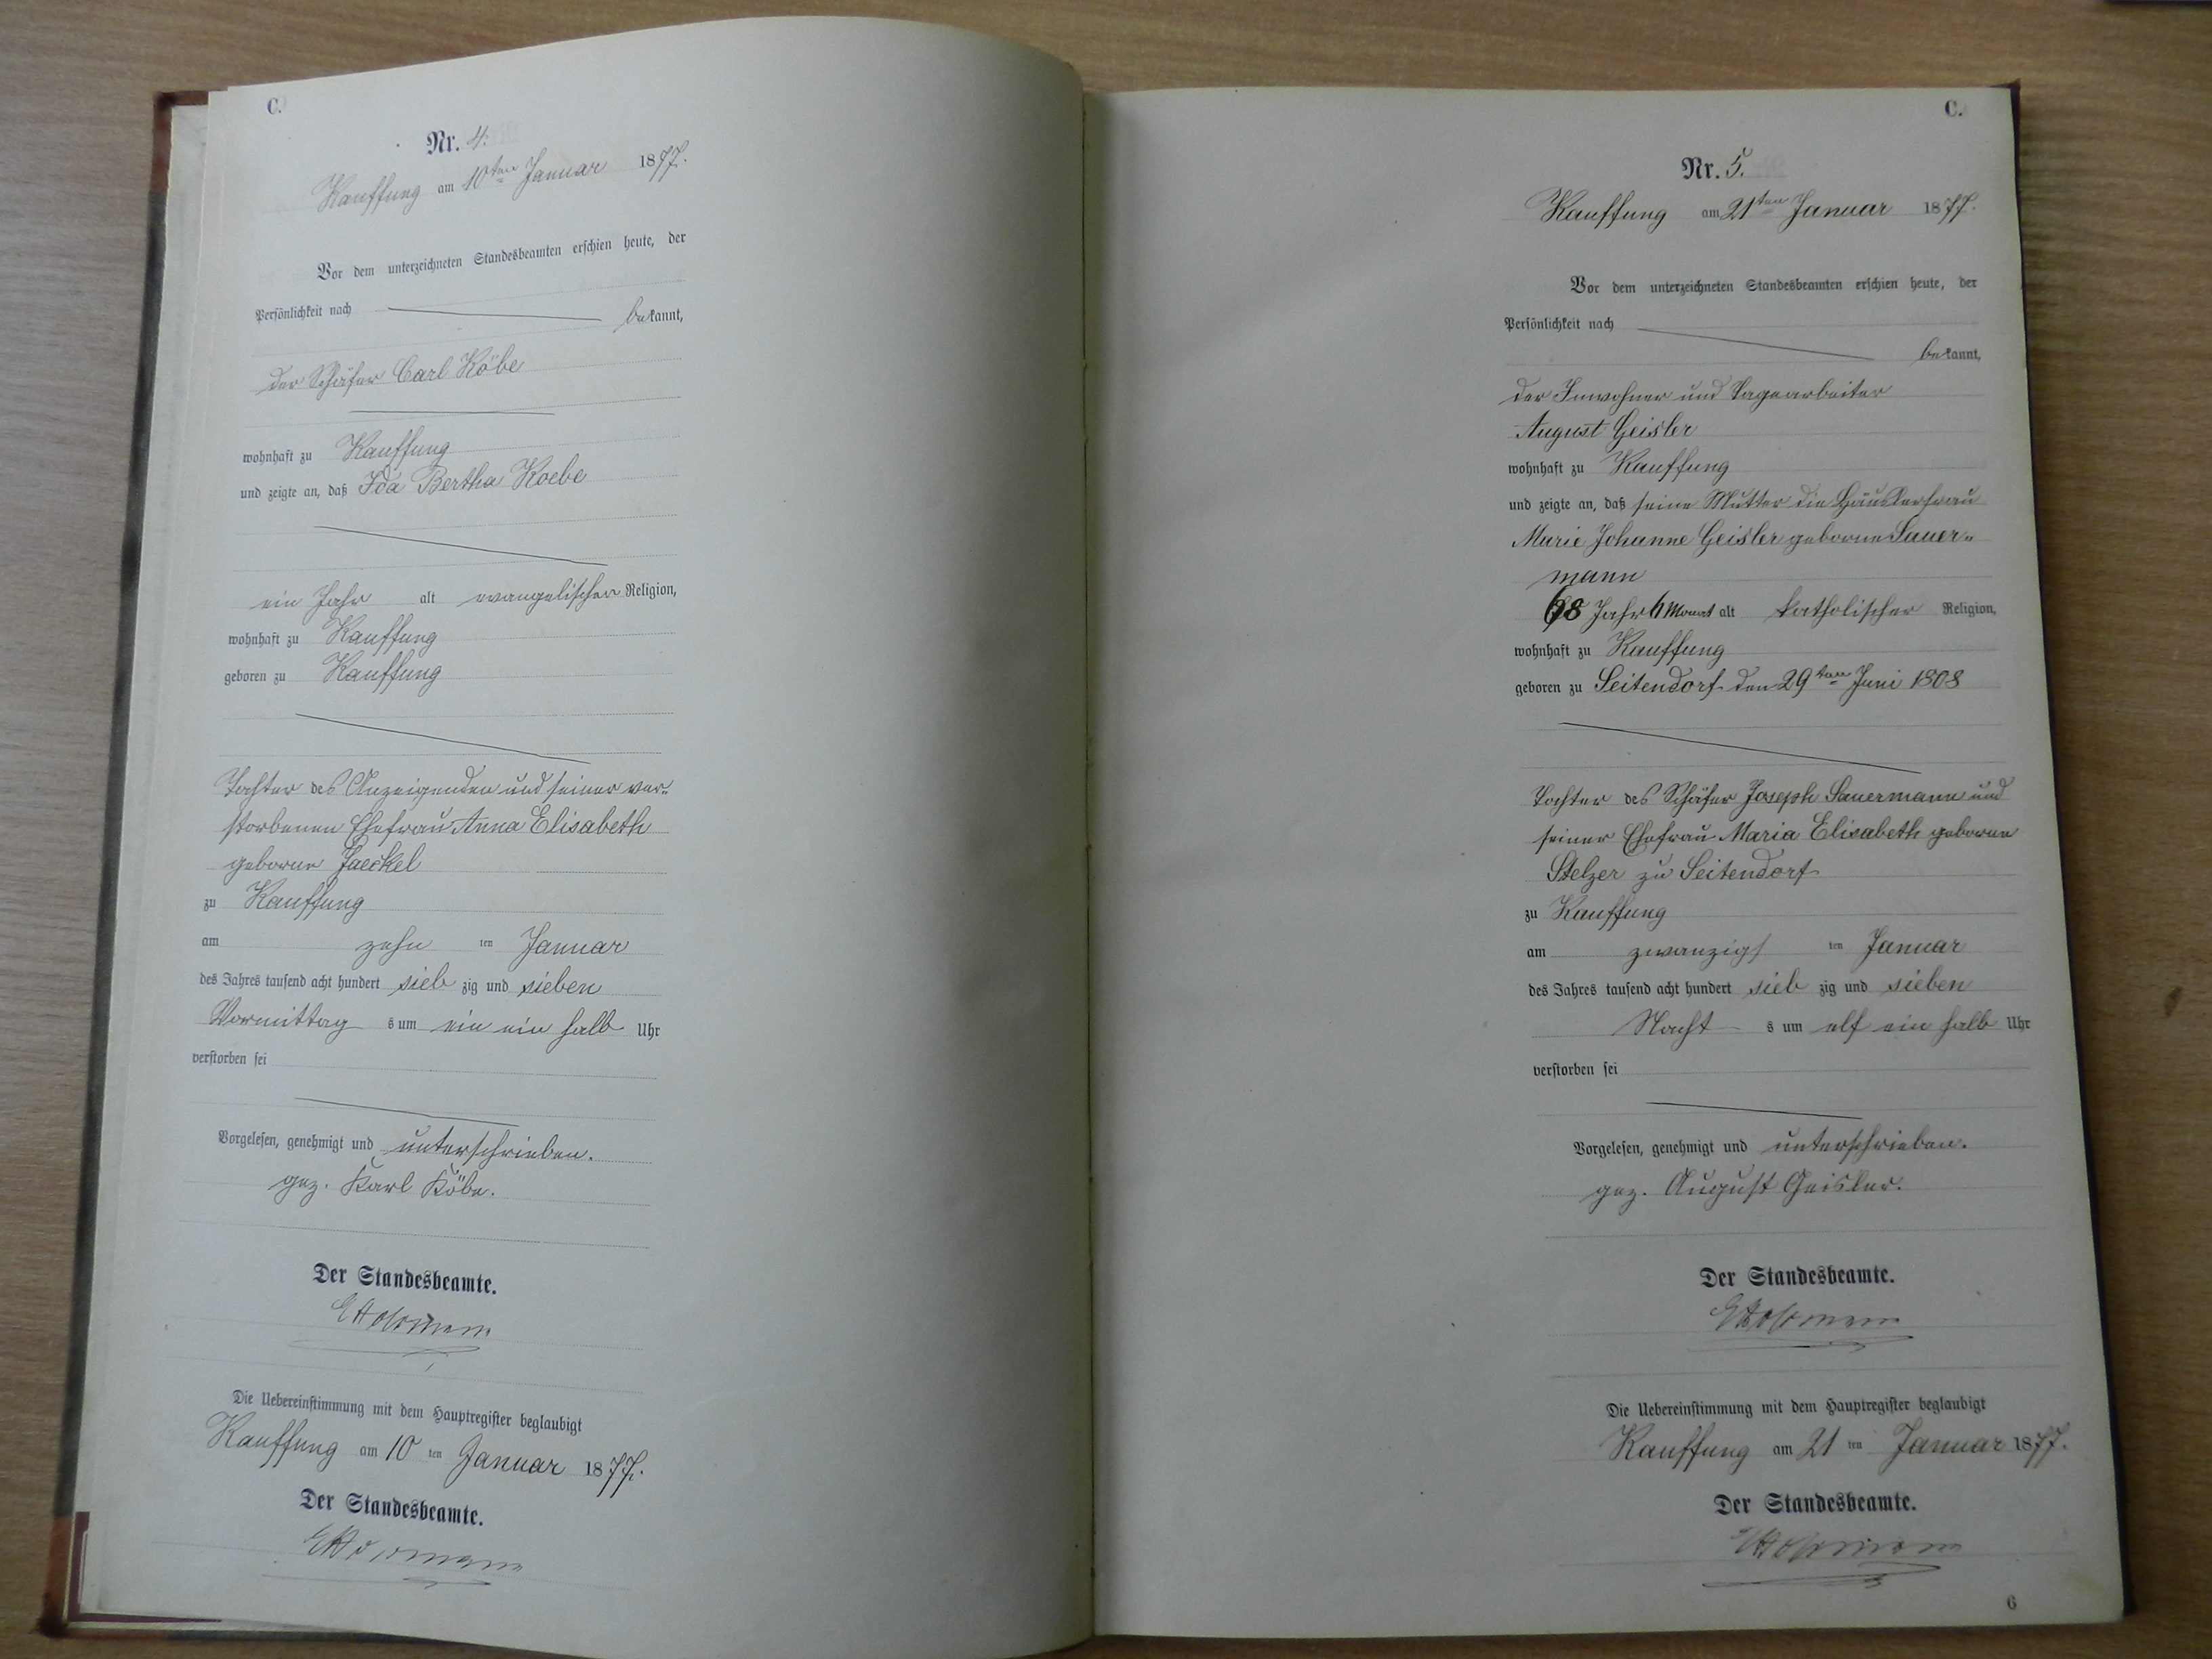 C.
Nr. 4.
Kauffung am 10ten Januar 1877.
Vor dem unterzeichneten Standesbeamten erschien heute, der
Persönlichkeit nach
bekannt,
der Schäfer Carl Köbe
wohnhaft zu Kauffung
und zeigte an, daß Ida Bertha Koebe
ein Jahr alt evangelischer Religion,
wohnhaft zu Kauffung
geboren zu Kauffung
Tochter des Anzeigenden und seiner ver-
storbenen Ehefrau Anna Elisabeth
geborne Jaeckel
zu Kauffung
am zehn ten Januar
des Jahres tausend acht hundert sieb zig und sieben
Vormittag s um ein ein halb Uhr
verstorben sei
Vorgelesen, genehmigt und unterschrieben.
gez. Karl Köbe.
Der Standesbeamte.
Die Uebereinstimmung mit dem Hauptregister beglaubigt
Kauffung am 10 ten Januar 1877.
Der Standesbeamte.
C.
Nr. 5.
Kauffung am 21ten Januar 1877.
Vor dem unterzeichneten Standesbeamten erschien heute, der
Persönlichkeit nach
bekannt,
der Inwohner und Tagearbeiter
August Geisler
wohnhaft zu Kauffung
und zeigte an, daß seine Mutter die Häuslerfrau
Marie Johanne Geisler geborne Sauer-
mann
68 Jahr 6 Monat alt katholischer Religion,
wohnhaft zu Kauffung
geboren zu Seitendorf den 29ten Juni 1808
Tochter des Schäfer Joseph Sauermann und
seiner Ehefrau Maria Elisabeth geborne
Stelzer zu Seitendorf
zu Kauffung
am zwanzigs ten Januar
des Jahres tausend acht hundert sieb zig und sieben
Nacht s um elf ein halb Uhr
verstorben sei
Vorgelesen, genehmigt und unterschrieben.
gez. August Geisler.
Der Standesbeamte.
Die Uebereinstimmung mit dem Hauptregister beglaubigt
Kauffung am 21 ten Januar 1877.
Der Standesbeamte.
6